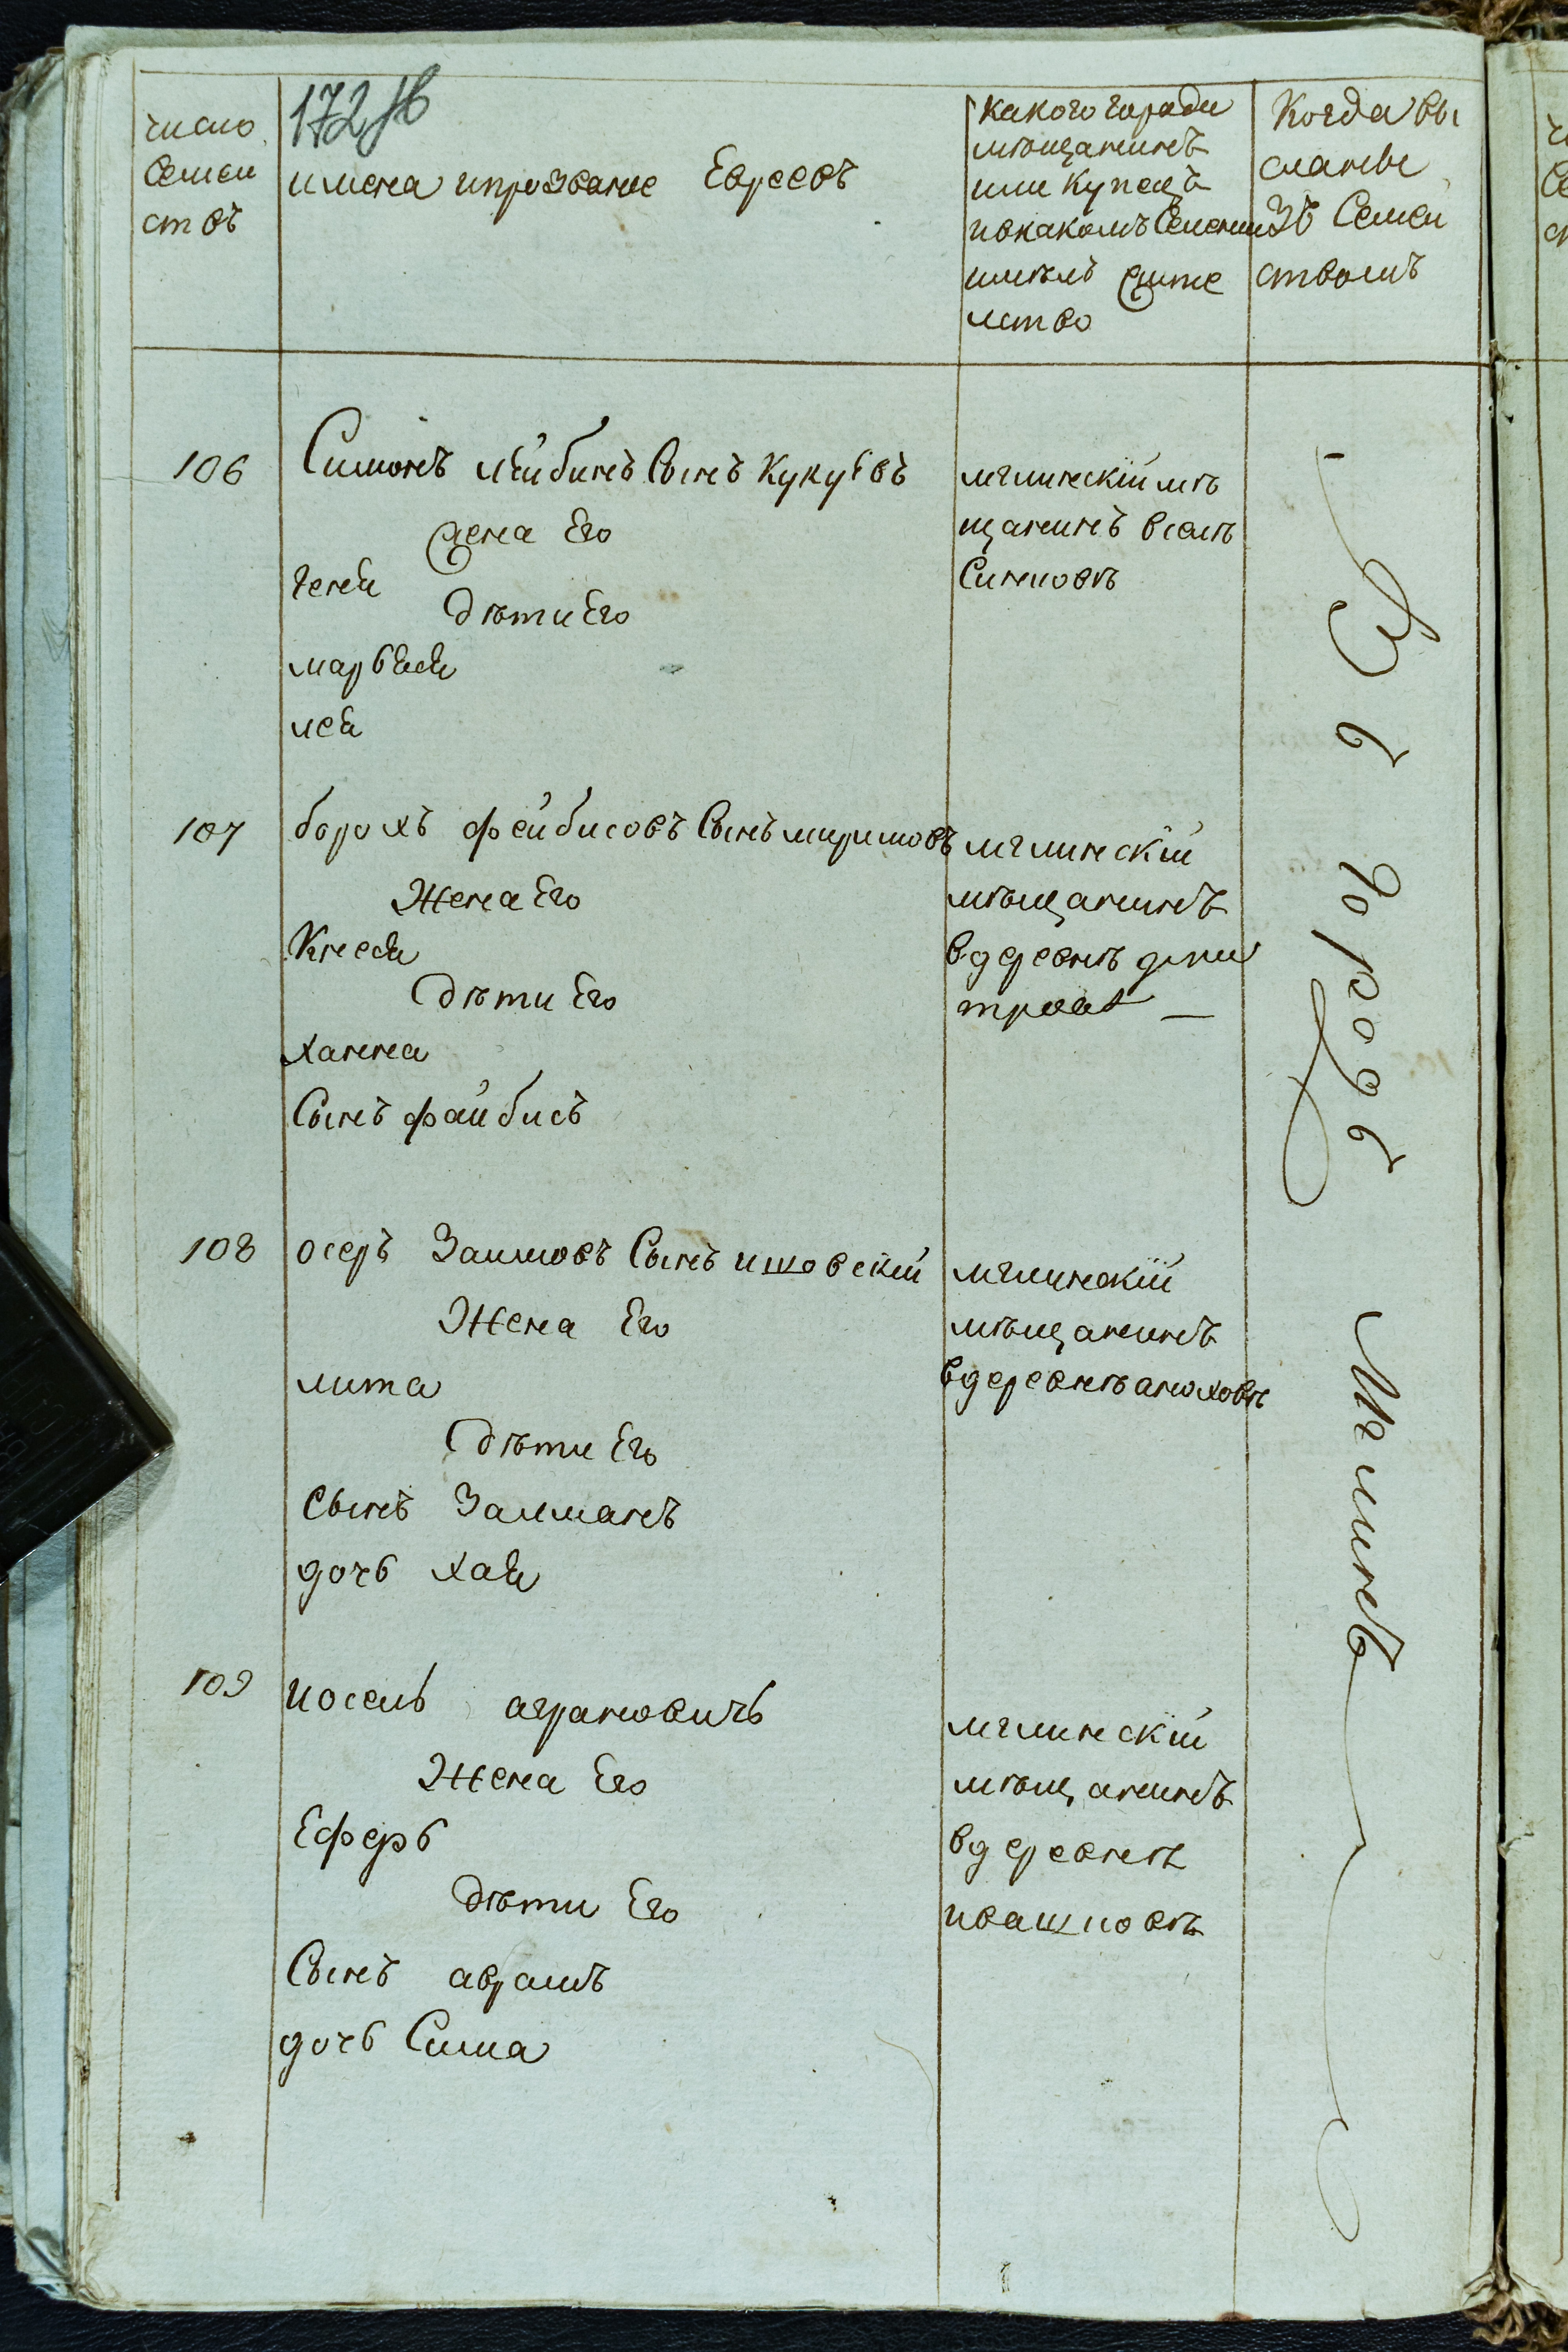 172 об
число
Семей
ствъ
имена ипрозвание Евреевъ
какого города
мѣщанинъ
или купецъ
ивкакомъ Селении
имелъ жите
лство
Когда вы
сланы
Зъ Семей
ствомъ
106
Симонъ лейбинъ Сынъ Кукуевъ
жена Его
генея
дѣти Его
марьяся
лея
мглинскій мѣ
щанинъ вселѣ
Синковѣ
107
борохъ фейбисовъ Сынъ миримовъ
Жена Его
Кнеся
Дѣти Его
ханна
Сынъ файбисъ
мглинскій
мѣщанинъ
вдеревнѣ дми
тровѣ
108
осеръ Заимовъ Сынъ ишовскій
Жена Его
лита
Дѣти Его
сынъ Залманъ
дочь хая
мглинскій
мѣщанинъ
вдеревнѣ анюховѣ
109
иосель аграновичь
Жена Его
Есферь
дѣти Его
Сынъ аврамъ
дочь Сима
мглинскій
мѣщанинъ
вдеревнѣ
ивашковѣ
Въ городъ Мглинъ